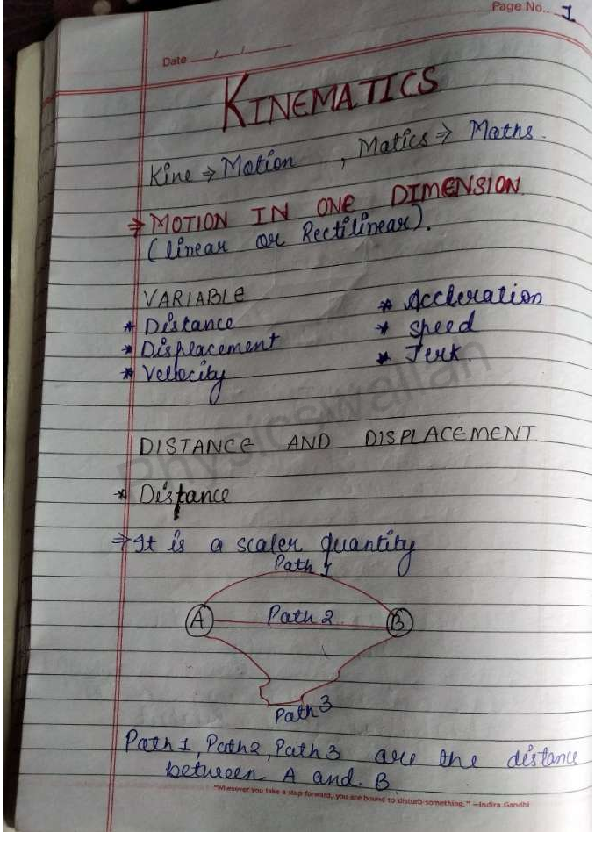 Page No. 1
Date
KINEMATICS
Kine ⇒ Motion , Matics ⇒ Maths.
⇒ MOTION IN ONE DIMENSION
(linear or Rectilinear).
VARIABLE
* Distance
* Displacement
* Velocity
* Accleration
* speed
* Jerk
Physicswallah
DISTANCE AND DISPLACEMENT
* Distance
⇒ It is a scaler quantity
Path 1
A
Path 2
B
Path 3
Path 1, Path 2, Path 3 are the distance
between A and B
"Whenever you take a step forward, you are bound to disturb something." –Indira Gandhi